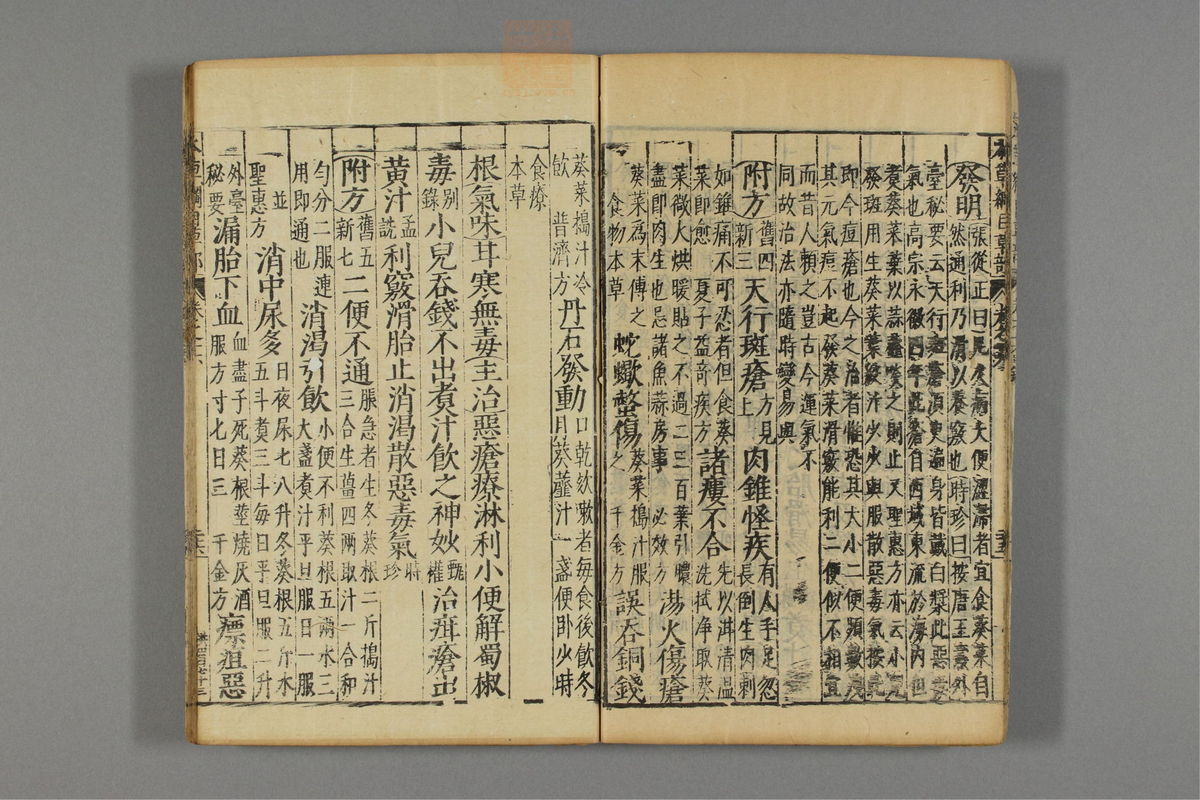 本草綱目草部
發明 張從正曰凡久病大便澀滯者宜食葵菜自
然通利乃滑以養竅也時珍曰按唐王燾外
臺秘要云天行斑瘡須臾遍身皆戴白漿此惡毒
氣也高宗永徽四年此瘡自西域東流於海內但
煮葵菜葉以蒜韲啖之則止又聖惠方亦云小兒
發斑用生葵菜葉絞汁少少與服散惡毒氣按此
即今痘瘡也今之治者惟恐其大小二便頻數泄
其元氣痘不起發葵菜滑竅能利二便似不相宜
而昔人賴之豈古今運氣不
同故治法亦隨時變易與
附方 舊四新三 天行斑瘡 方見上 肉錐怪疾 有人手足忽長倒生肉刺
如錐痛不可忍者但食葵菜即愈 夏子益奇疾方 諸瘻不合 先以泔清温洗拭净取葵
菜微火烘暖貼之不過二三百葉引膿盡即肉生也忌諸魚蒜房事 必效方 湯火傷瘡
葵菜為末傅之 食物本草 蛇蠍螫傷 葵菜搗汁服之 千金方 誤吞銅錢
葵菜搗汁冷飲 普濟方 丹石發動 口乾欬嗽者每食後飲冬月葵虀汁一盞便卧少時
食療本草
根氣味甘寒無毒主治惡瘡療淋利小便解蜀椒
毒 別錄 小兒吞錢不出煮汁飲之神妙 甄權 治疳瘡出
黃汁 孟詵 利竅滑胎止消渴散惡毒氣 時珍
附方 舊五新七 二便不通 脹急者生冬葵根二斤搗汁三合生薑四兩取汁一合和
勻分二服連用即通也 消渴引飲 小便不利葵根五兩水三大盞煮汁平旦服日一服
並聖惠方 消中尿多 日夜尿七八升冬葵根五斤水五斗煮三斗每日平旦服二升
外臺秘要 漏胎下血 血盡子死葵根莖燒灰酒服方寸七日三 千金方 瘭疽惡